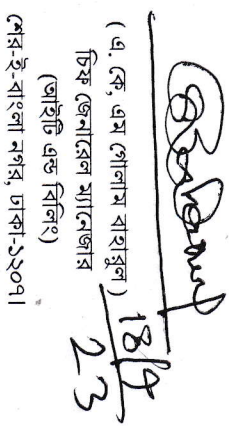 18/4
23
(এ. কে, এম গোলাম বাহারুল)
চিফ জেনারেল ম্যানেজার
(আইটি এন্ড বিলিং)
শের-ই-বাংলা নগর, ঢাকা-১২০৭।